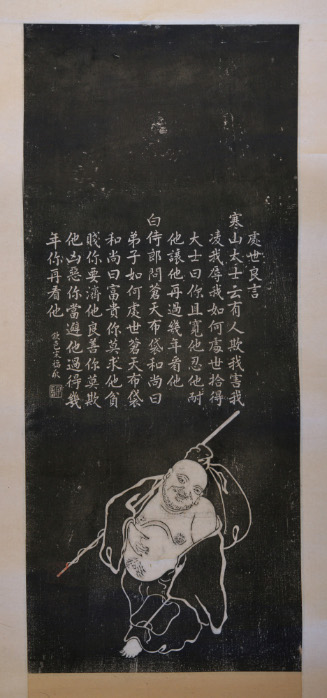 處世良言
寒山太士云有人欺我害我
凌我辱我如何處世拾得
大士曰你且寬他忍他耐
他讓他再過幾年看他
白侍郎問蒼天布袋和尚曰
弟子如何處世蒼天布袋
和尚曰富貴你莫求他貧
賤你要濟他良善你莫欺
他凶惡你當避他過得幾
年你再看他